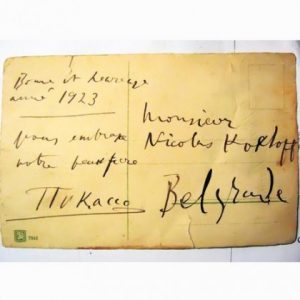 Bonne et heureuse
année 1923
vous embrasse
votre beau frère
Пикассо
Monsieur
Nicolas Kokloff
Belgrade